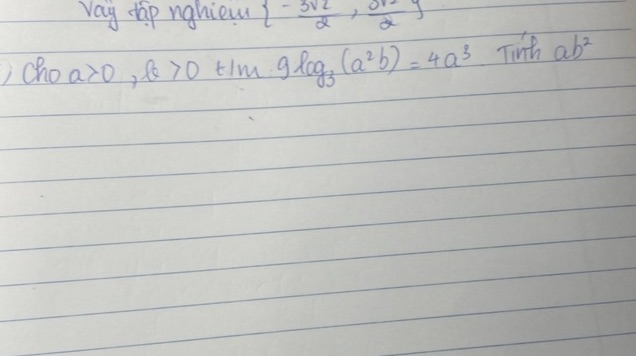 Vậy tập nghiệm { - 3√2/2 , 3√2/2 }
) Cho a>0, b>0 t/m 9log₃(a²b) = 4a³ Tính ab²